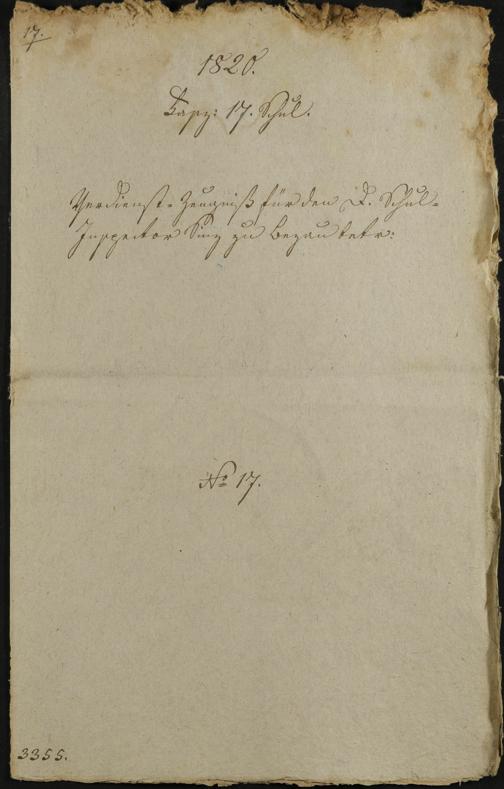 17.
1820.
Fasz: 17. Schul.
Verdienst-Zeugniß für den D. Schul-
Inspector Sinz zu Bezau betr:
No 17.
3355.